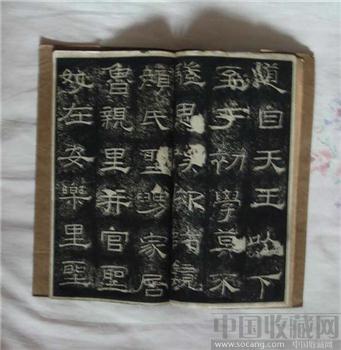 道自天王以下
至于初學莫不
驥思嘆卬師鏡
顏氏聖舅家居
魯親里并官聖
妃在安樂里聖
中国收藏网
www.socang.com